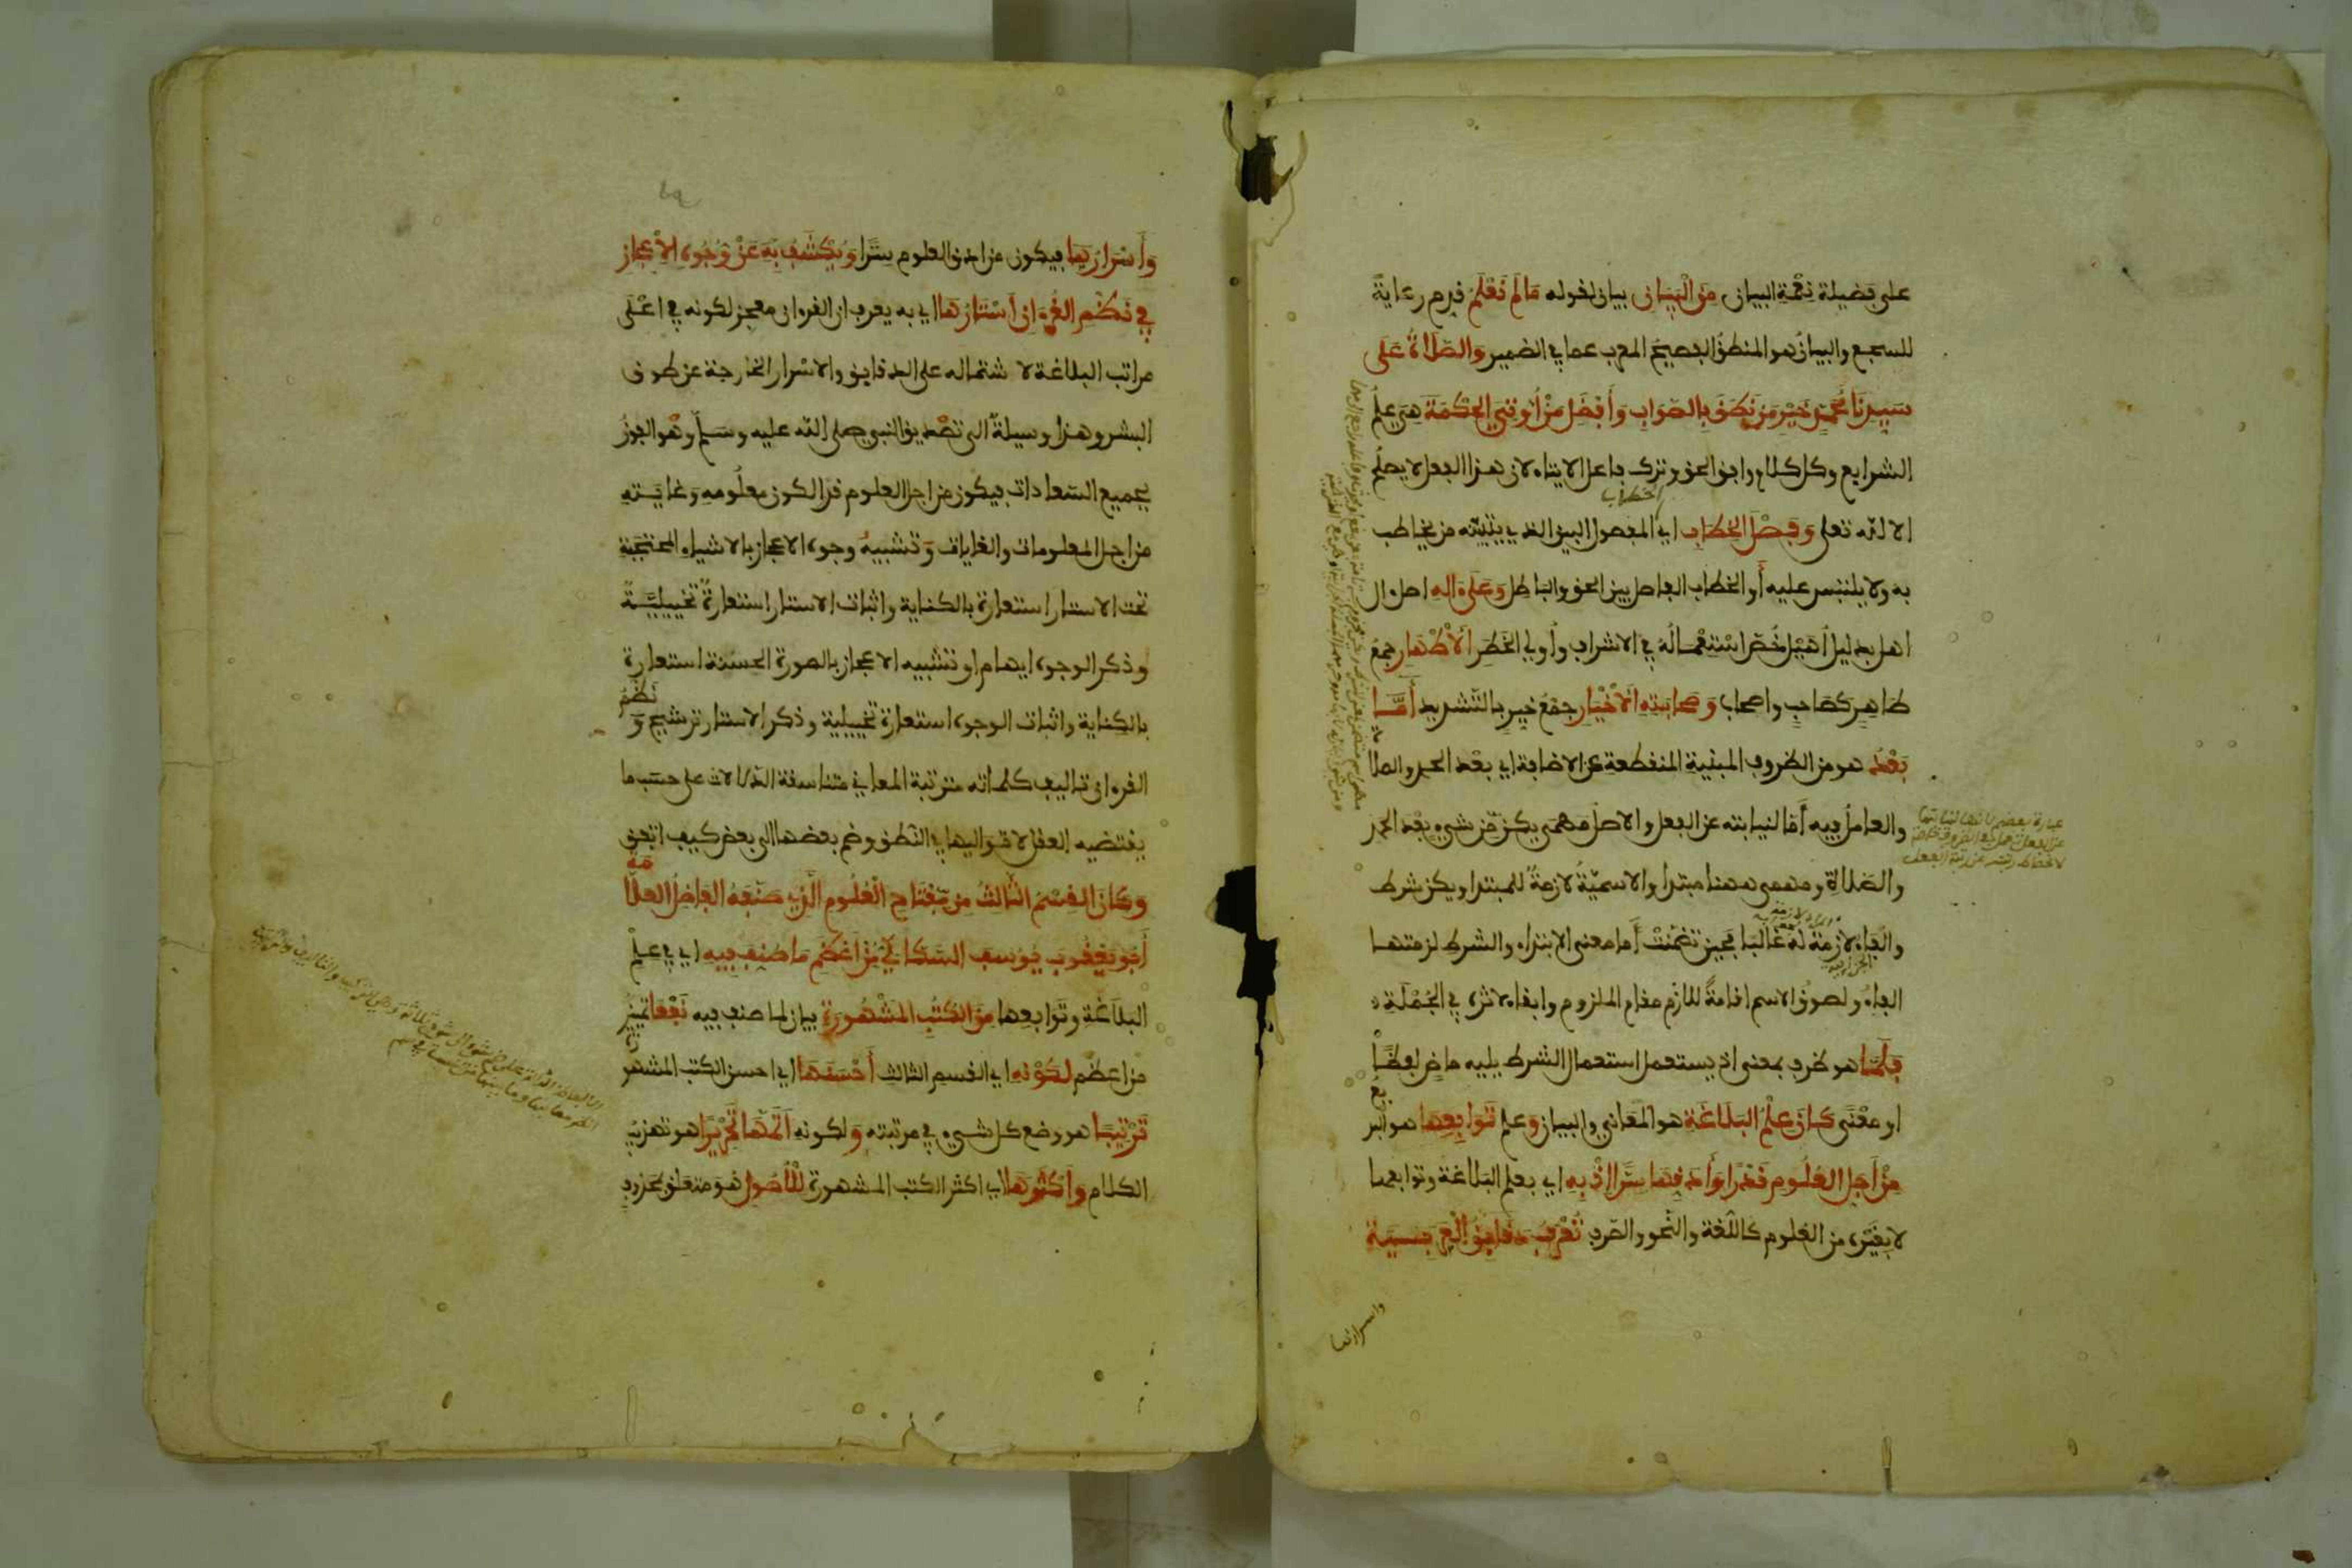 على فضيلة نعمة البيان من البيان بيان لقوله ما لم نعلم قدم رعاية
للسجع والبيان هو المنطق الفصيح المعرب عما في الضمير والصلاة على
سيدنا محمد خير من نطق بالصواب وأفضل من أوتي الحكمة هي علم
الشرايع وكل كلام وافق الحق وترك فاعل الايتاء لان هذا الفعل لا يصلح
الا لله تعلى وفصل الخطاب اي المفصول البين الذي يتبينه من يخاطب
الخطاب
به ولا يلتبس عليه أو الخطاب الفاصل بين الحق والباطل وعلى اله اصل ال
اهل بدليل أهيل خص استعماله في الاشراف وأولي الخطر الأطهار جمع
طاهر كصاحب واصحاب وصحابته الأخيار جمع خير بالتشديد أما
بعد هو من الظروف المبنية المنقطعة عن الاضافة اي بعد الحمد والصلا
والعامل فيه أما لنيابته عن الفعل والاصل مهمى يكن من شيء بعد الحمد
والصلاة ومهمى ههنا مبتدا والاسمية لازمة للمبتدا ويكن شرط
والفاء لازمة له غالبا فحين تضمنت أما معنى الابتداء والشرط لزمتها
الفاء ولصوق الاسم اقامة للازم مقام الملزوم وابقاء لاثره في الجملة
فلما هو ظرف بمعنى اذ يستعمل استعمال الشرط يليه ماض لفظا
او معنى كان علم البلاغة هو المعاني والبيان وعلم توابعها هو البد
يع
من أجل العلوم قدرا وأدقها سرا إذ به اي بعلم البلاغة وتوابعها
لا بغيره من العلوم كاللغة والنحو والصرف تعرف دقايق العربية
واسرارها
وأسرارها فيكون من ادق العلوم سرا ويكشف به عن وجوه الإعجاز
في نظم القرءان أستارها اي به يعرف ان القرءان معجز لكونه في اعلى
مراتب البلاغة لاشتماله على الدقايق والاسرار الخارجة عن طوق
البشر وهذا وسيلة الى تصديق النبي صلى الله عليه وسلم وهو الفوز
بجميع السعادات فيكون من اجل العلوم قدرا لكون معلومه وغايته
من اجل المعلومات والغايات وتشبيه وجوه الاعجاز بالاشياء المحتجبة
تحت الاستار استعارة بالكناية واثبات الاستار استعارة تخييلية
وذكر الوجوه ايهام او تشبيه الاعجاز بالصورة الحسنة استعارة
بالكناية واثبات الوجوه استعارة تخييلية وذكر الاستار ترشيح و
نظم
القرءان تاليف كلماته مترتبة المعاني متناسقة الدلالات على حسب ما
يقتضيه العقل لا تواليها في النطق وضم بعضها الى بعض كيف اتفق
وكان القسم الثالث من مفتاح العلوم الذي صنفه الفاضل العلا
مة
أبو يعقوب يوسف السكاكي من أعظم ما صنف فيه اي في علم
البلاغة وتوابعها من الكتب المشهورة بيان لما صنف فيه نفعا تمييز
من اعظم لكونه اي القسم الثالث أحسنها اي احسن الكتب المشهو
رة
ترتيبا هو وضع كل شيء في مرتبته ولكونه أتمها تحريرا هو تهذيب
الكلام وأكثرها اي اكثر الكتب المشهورة للأصول هو متعلق بمحذوف